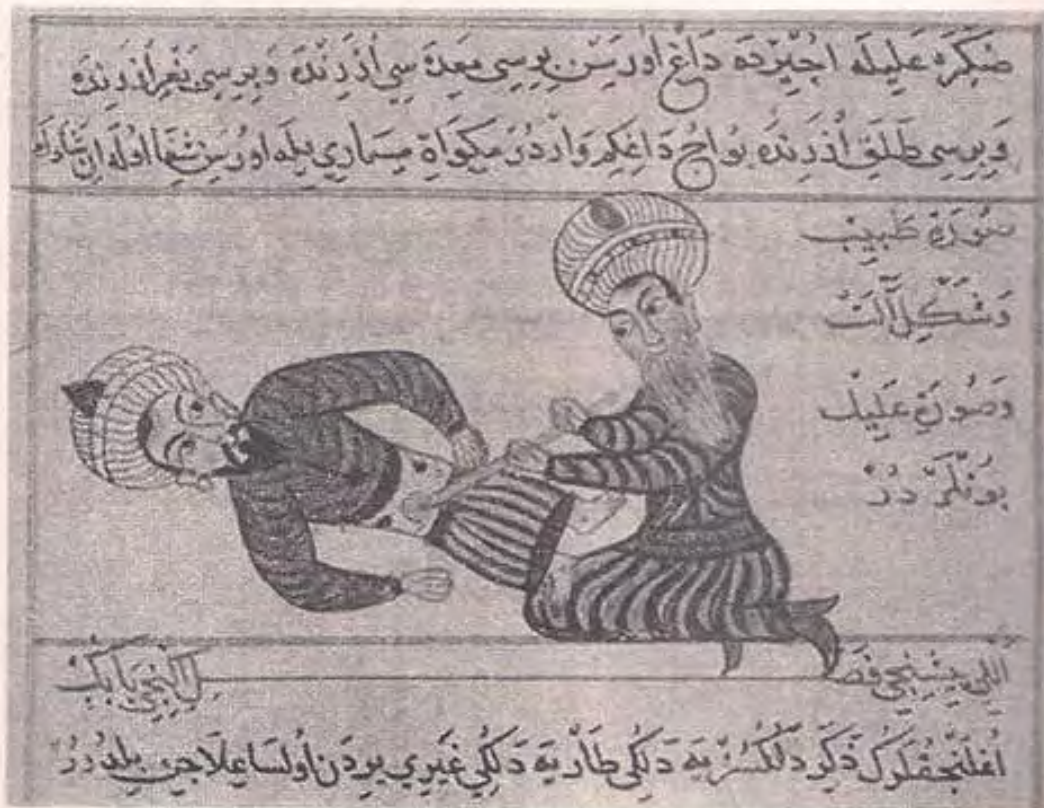 صكره عليله اجيزده داغ اورسن بريسى معده سى اُذرنده وبريسى بغر اُذرنده
وبريسى طلق اُذرنده بو اوج داغكم واردر مكواة مسمارى بيله اورسن شفا اوله ان شاء الله
صورة طبيب
وشكل آلت
وصورة عليل
بونلر در
اللى بشنجى فصل اكنجى باب
اغلنجقلروك ذكر دلكسزيه دلكى طار يه دلكى غيرى يردن اولسا علاجن بلدرر